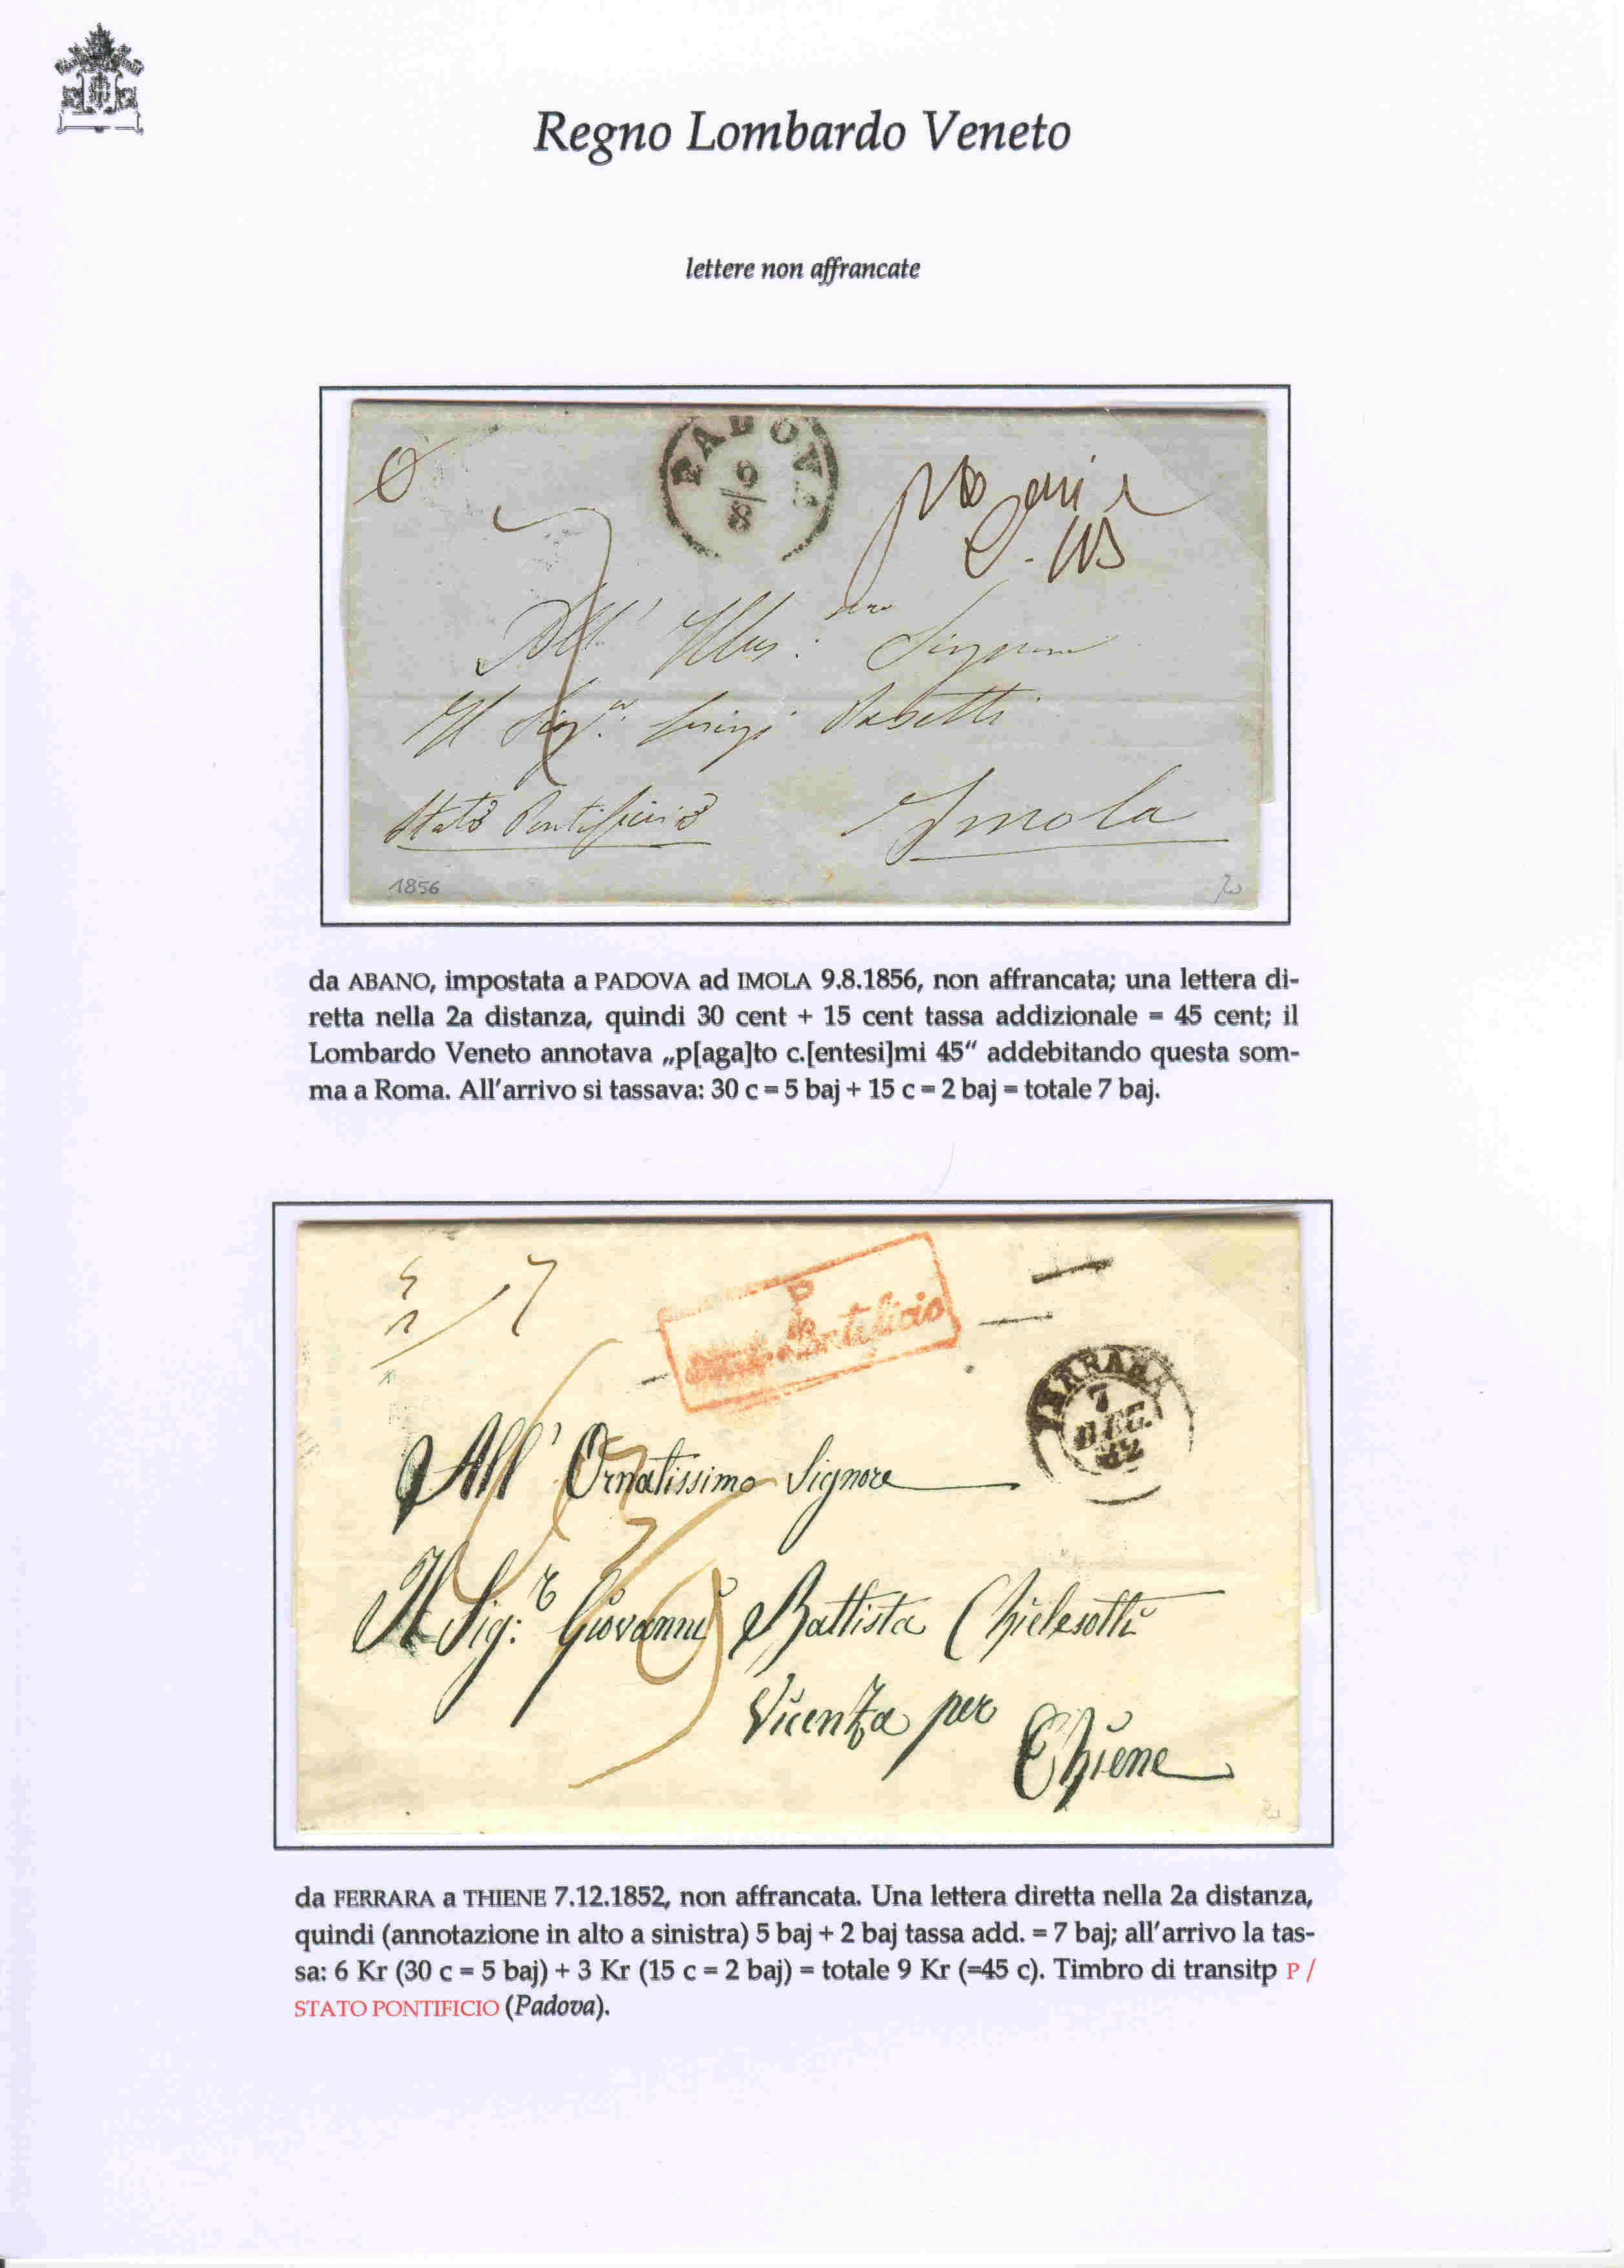 Regno Lombardo Veneto
lettere non affrancate
PADOVA
9/8
All' Illus:mo Signore
Il Sigr: Luigi
Stato Pontificio Imola
1856
da ABANO, impostata a PADOVA ad IMOLA 9.8.1856, non affrancata; una lettera di-
retta nella 2a distanza, quindi 30 cent + 15 cent tassa addizionale = 45 cent; il
Lombardo Veneto annotava „p[aga]to c.[entesi]mi 45" addebitando questa som-
ma a Roma. All'arrivo si tassava: 30 c = 5 baj + 15 c = 2 baj = totale 7 baj.
5/2 7
P
Stato Pontificio
FERRARA
7
DEC.
52
All' Ornatissimo Signore
Il Sig:r Giovanni Battista Chielesotti
Vicenza per
Thiene
6
3/9
da FERRARA a THIENE 7.12.1852, non affrancata. Una lettera diretta nella 2a distanza,
quindi (annotazione in alto a sinistra) 5 baj + 2 baj tassa add. = 7 baj; all'arrivo la tas-
sa: 6 Kr (30 c = 5 baj) + 3 Kr (15 c = 2 baj) = totale 9 Kr (=45 c). Timbro di transitp P /
STATO PONTIFICIO (Padova).